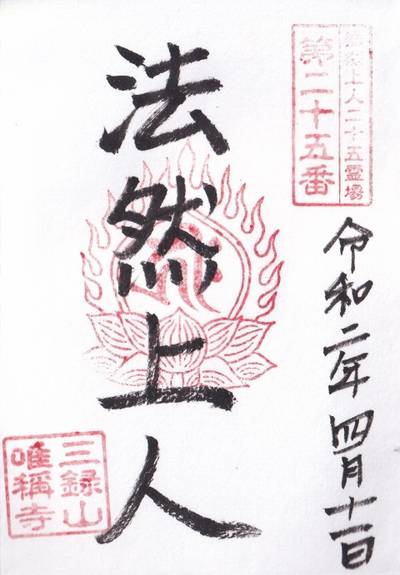 法然上人二十五霊場
第二十五番
令和二年四月十一日
法然上人
三録山
唯称寺